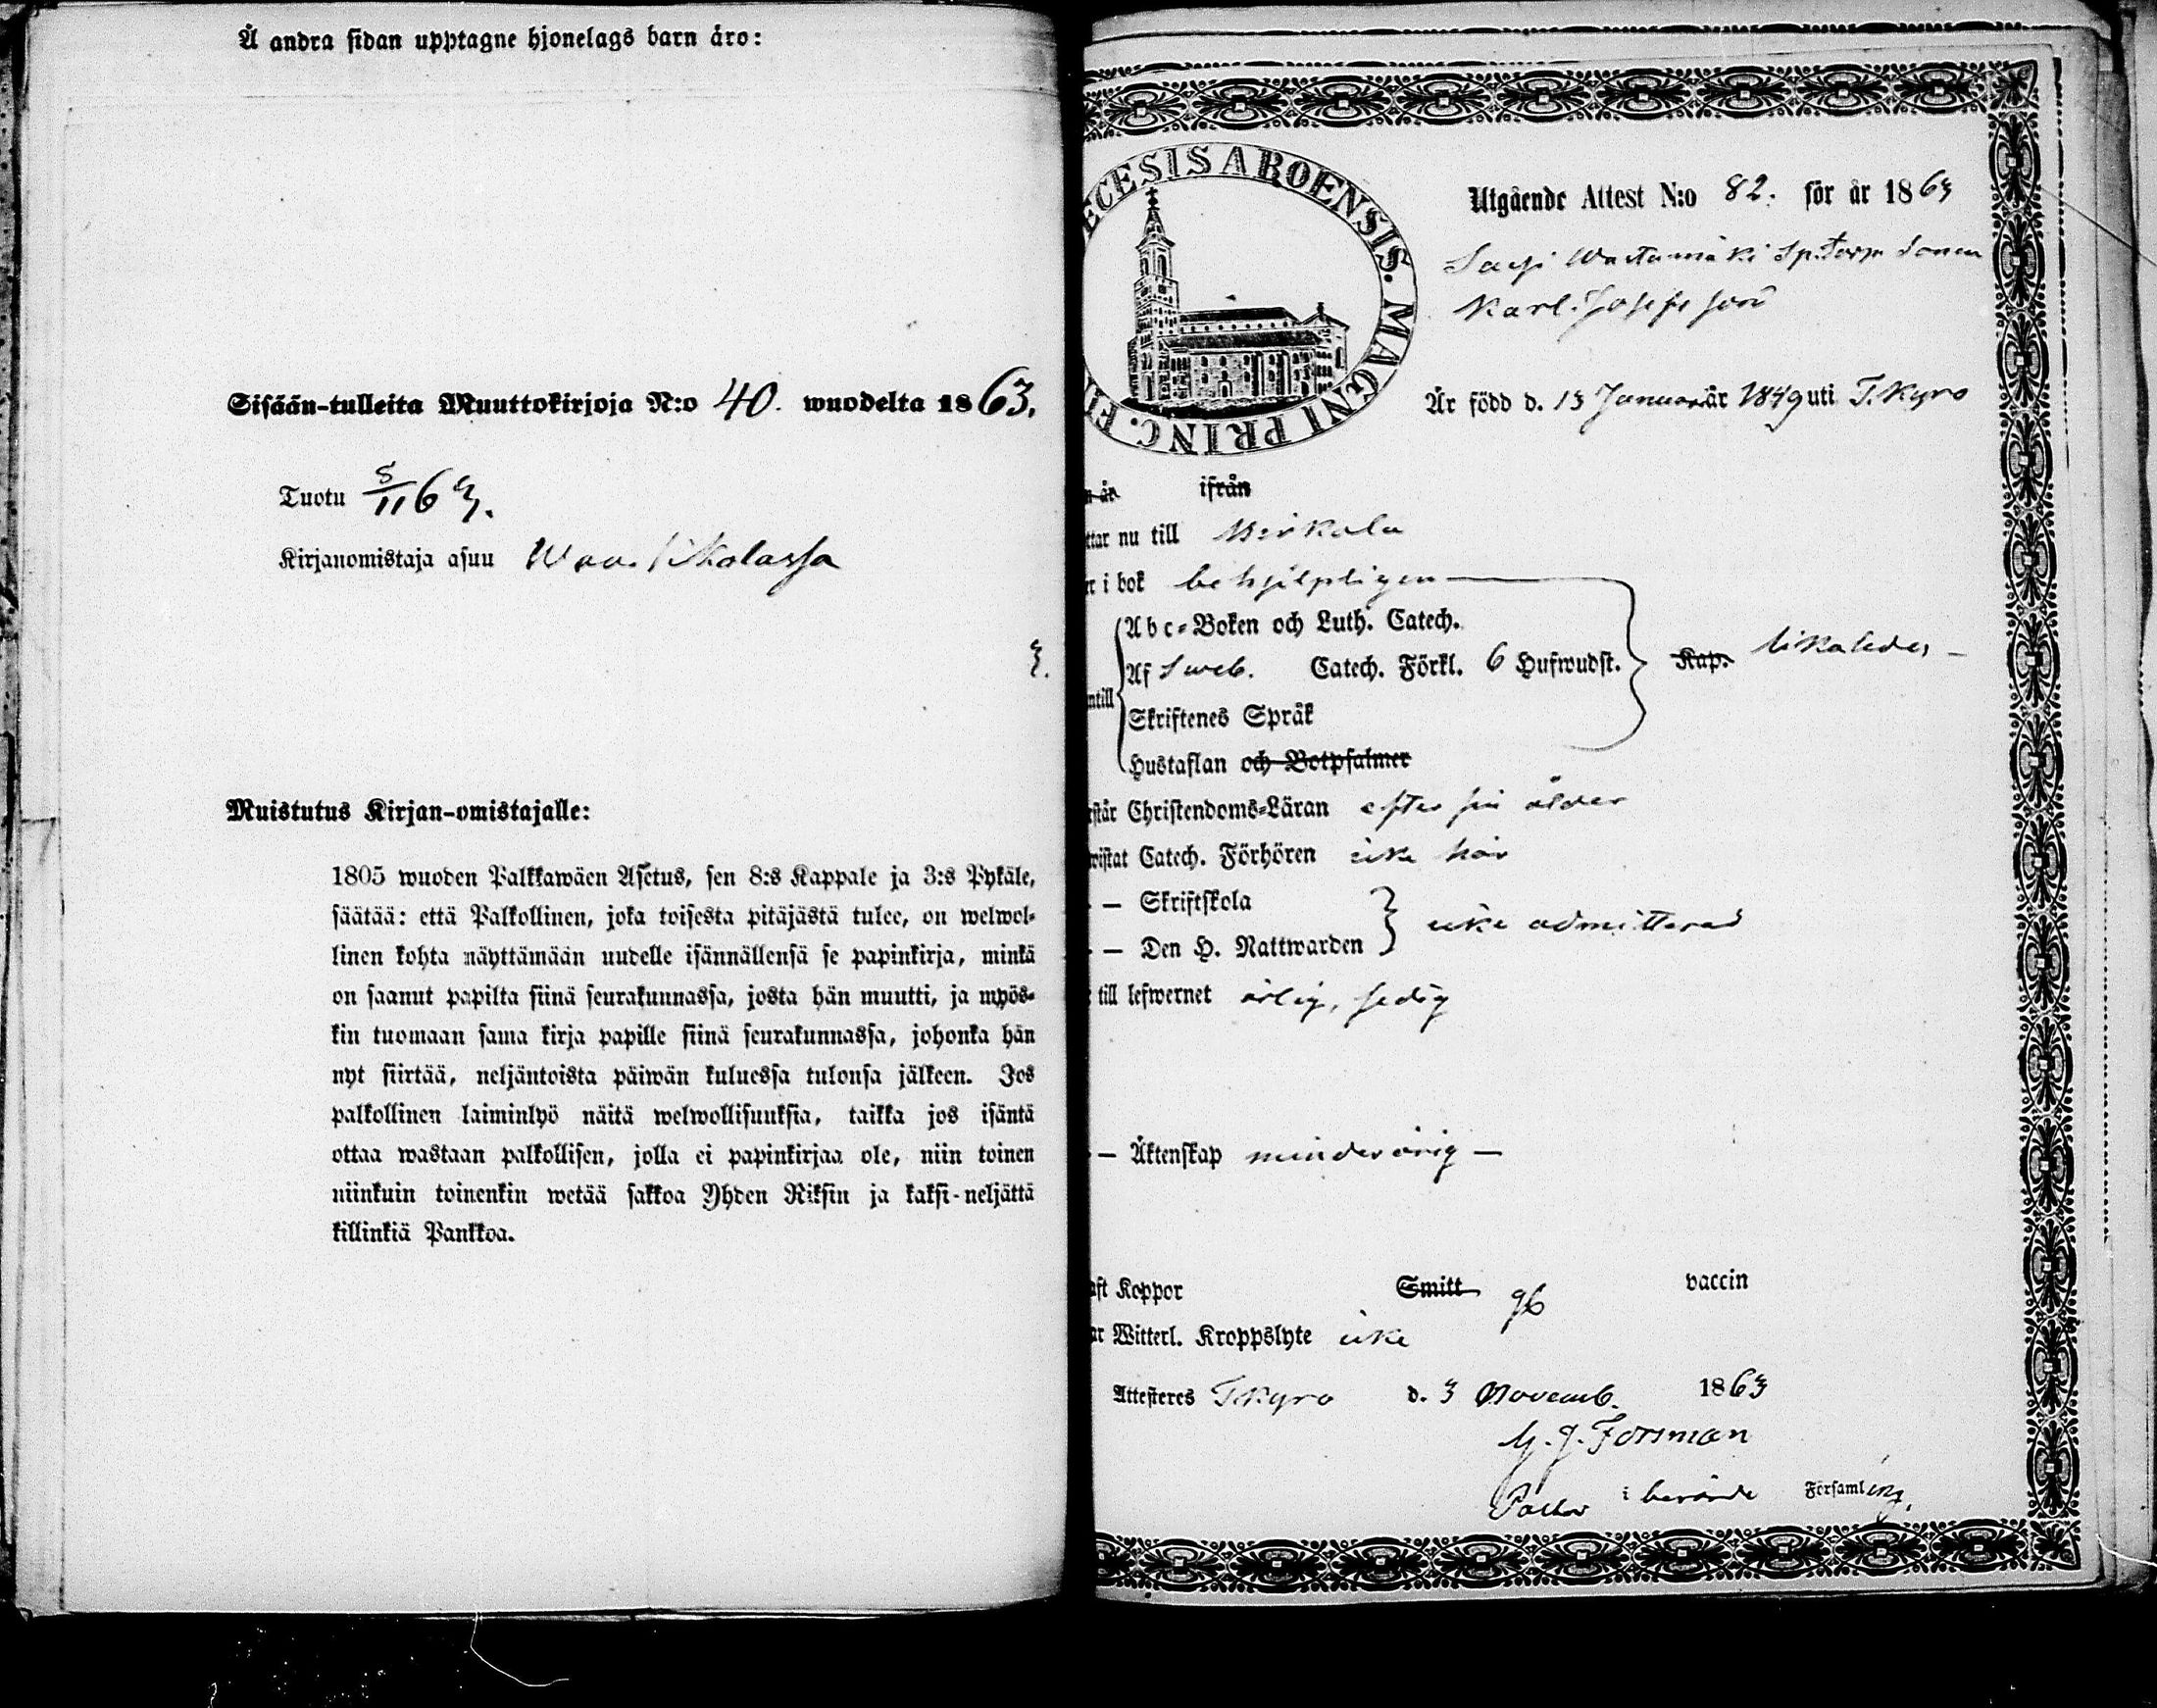 Å andra sidan upptagne hjonelags barn äro:
Sisään-tulleita Muuttokirjoja N:o 40. wuodelta 1863.
Tuotu 5/11 63.
Kirjanomistaja asuu
3.
Muistutus Kirjan-omistajalle:
1805 wuoden Palkkawäen Asetus, sen 8:s Kappale ja 3:s Pykäle,
säätää: että Palkollinen, joka toisesta pitäjästä tulee, on welwol-
linen kohta näyttämään uudelle isännällensä se papinkirja, minkä
on saanut papilta siinä seurakunnassa, josta hän muutti, ja myös-
kin tuomaan sama kirja papille siinä seurakunnassa, johonka hän
nyt siirtää, neljäntoista päiwän kuluessa tulonsa jälkeen. Jos
palkollinen laiminlyö näitä welwollisuuksia, taikka jos isäntä
ottaa wastaan palkollisen, jolla ei papinkirjaa ole, niin toinen
niinkuin toinenkin wetää sakkoa Yhden Riksin ja kaksi-neljättä
killinkiä Pankkoa.
ECESIS ABOENSIS. MAGNI PRINC. FI
Utgående Attest N:o 82. för år 1863
Sasi Sp. Torp. Sonen
Karl Josefsson
Är född d. 13 Januari år 1849 uti T.Kyro
n år ifrån
ttar nu till Birkala
er i bok behjelpligen
Abc-Boken och Luth. Catech.
Af Sveb. Catech. Förkl. 6 Hufwudst. Kap. likaledes
ntill
Skriftenes Språk
Hustaflan och Botpsalmer
rstår Christendoms-Läran efter sin ålder
wistat Catech. Förhören icke här
— Skriftskola
— Den H. Nattwarden icke admitterad
till lefwernet ärlig, sedig
— Äktenskap minderårig —
aft Koppor Smitt gb vaccin
ar Witterl. Kroppslyte icke
Attesteres T.Kyro d. 3 Novemb. 1863
G. J. Forsman
Pastor i berörde Församling.